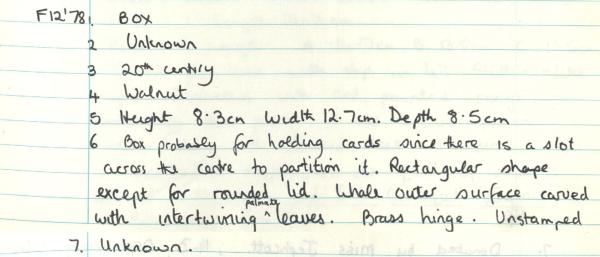 F12'78 1. BOX
2 Unknown
3 20th century
4 Walnut
5 Height 8.3cm Width 12.7cm. Depth 8.5cm
6 Box probably for holding cards since there is a slot
across the centre to partition it. Rectangular shape
except for rounded lid. Whole outer surface carved
with intertwining ^palmate leaves. Brass hinge. Unstamped
7. Unknown.